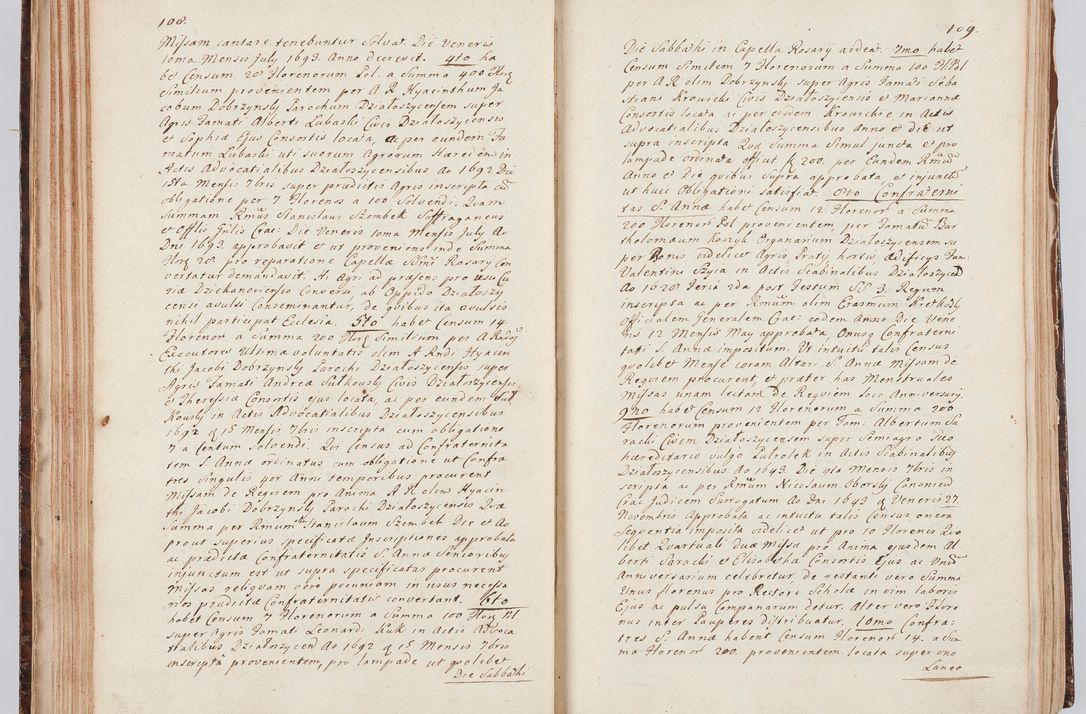 108.
Missam cantare tenebuntur Solvat. Die Veneris
10ma Mensis July 1693. Anno decrevit. 4to ha
bet Censum 28 Florenorum Pol. a Summa 400 Flor
Similium provenientem per A. R. Hyacinthum Ja
cobum Dobrzynsky Parochum Działoszycensem super
Agris Famati Alberti Lubaski Civis Działoszycensis
et Sophiæ Ejus Consortis locata, ac per eundem Fa
matum Lubaski uti suorum Agrorum Hæredem in
Actis Advocatialibus Działoszycensibus Ao 1692 Die
15ta Mensis 7bris super prædictis Agris inscripta cum
obligatione per 7 Florenos a 100 Solvendi. Quam
Summam Rmus Stanislaus Szembek Suffraganeus
et Offlis Gnlis Crac: Die Veneris 10ma Mensis July Ao
Dni 1693. approbavit et ut proveniens inde Summa
Flor 28 pro reparatione Capellæ SSmi Rosary Con
vertatur demandavit. At Agri ad præsens pro usu Cu
riæ Dziekanoviensis Conversi ab Oppido Działoszy
censi avulsi Conseminantur, de quibus ita avulsis
nihil participat Ecclesia. 5to habet Censum 14
Florenor a Summa 200 Flor Similium per A Rndos
Executores Ultimæ voluntatis olim A Rndi Hyacin
thi Jacobi Dobrzynsky Parochi Działoszycensis super
Agris Famati Andreæ Sulkousky Civis Działoszycensis
et Theresiæ Consortis Ejus locata, ac per eundem Sul
kousky in Actis Advocatialibus Działoszycensibus
1692 d 15 Mensis 7bris inscripta cum obligatione
7 a Centum Solvendi. Qui Census ad Confraternita
tem S. Annæ ordinatus cum obligatione ut Confra
tres Singulis 4or Anni temporibus procurent
Missam de Requiem pro Anima A R olim Hyacin
thi Jacobi Dobrzynsky Parochi Działoszycensis Quæ
Summa per Rmum Stanislaum Szembek Die et Ao
prout superius specificatæ Inscriptiones approbata
ac prædictæ Confraternitatis S. Annæ Senioribus
injunctum est ut supra specificatas procurent
Missas reliquam vero pecuniam in usus necessa
rios prædictæ Confraternitatis convertant. 6to
habet Censum 7 Florenorum a Summa 100 Flor Pol
super Agris Famat Leonardi Kuk in Actis Advoca
tialibus Działoszycen Ao 1692 d 15 Mensis 7bris
inscripta provenientem, pro lampade ut quolibet
Die Sabbathi
109.
Die Sabbathi in Capella Rosary ardeat. 7mo habet
Censum Similem 7 Florenorum a Summa 100 Fl Pol
per A R olim Dobrzynsky super Agris Famati Seba
stiani Krowicki Civis Działoszycensis et Mariannæ
Consortis locata ac per eosdem Krowickie in Actis
Advocatialibus Działoszycensibus Anno et Die ut
supra inscripta Quæ Summa Simul juncta et pro
lampade ordinata efficit fl 200. per Eundem Rmum
Anno et Die quibus Supra approbata, et injunctum
ut huic Obligationi satisfiat. 8vo Confraterni
tas S. Annæ habet Censum 12 Florenor a Summa
200 Florenor Pol provenientem, per Famatum Bar
tholomæum Koczyk Organarium Działoszycensem su
per Bonis videlicet Agris Pratis, hortis, ædificys Fam:
Valentini Szyia in Actis Scabinalibus Działoszycen
Ao 1628 Feria 2da post Festum SS. 3. Regum
inscripta ac per Rmum olim Erasmum Kretkosky
Officialem Generalem Crac: eodem Anno Die Vene
ris 12 Mensis May approbata, Onusq Confraterni
tati S. Annæ impositum. Ut intuitu talis Census
quolibet Mense coram Altari S. Annæ Missam de
Requiem procurent, et præter has Menstruales
Missas unam lectam de Requiem loco Anniversary.
9no habet Censum 12 Florenorum a Summa 200
Florenorum provenientem per Fam: Albertum Sa
rachi Civem Działoszycensem super Semiagro suo
hæreditario vulgo Pulrolek in Actis Scabinalibus
Działoszycensibus Ao 1643. Die 4ta Mensis 7bris in
scripta ac per Rmum Nicolaum Oborsky Canonicum
Crac Judicem Surrogatum Ao Dni 1643 d Veneris 27
Novembris Approbata ac intuitu talis Census onera
Sequentia imposita videlicet ut pro 10 Florenis Quo
libet Quartuali duæ Missæ pro Anima ejusdem Al
berti Sarachi et Elisabetha Consortis Ejus ac Unum
Anniversarium celebretur, de restanti vero Summa
Unus Florenus pro Rectore Scholæ in vim laboris
Ejus ac pulsu Campanarum detur. Alter vero Flore
nus inter Pauperes distribuatur. 10mo Confra:
tres S. Annæ habent Censum Florenor 14. a Sum
ma Florenor 200. provenientem locata super uno
Laneo